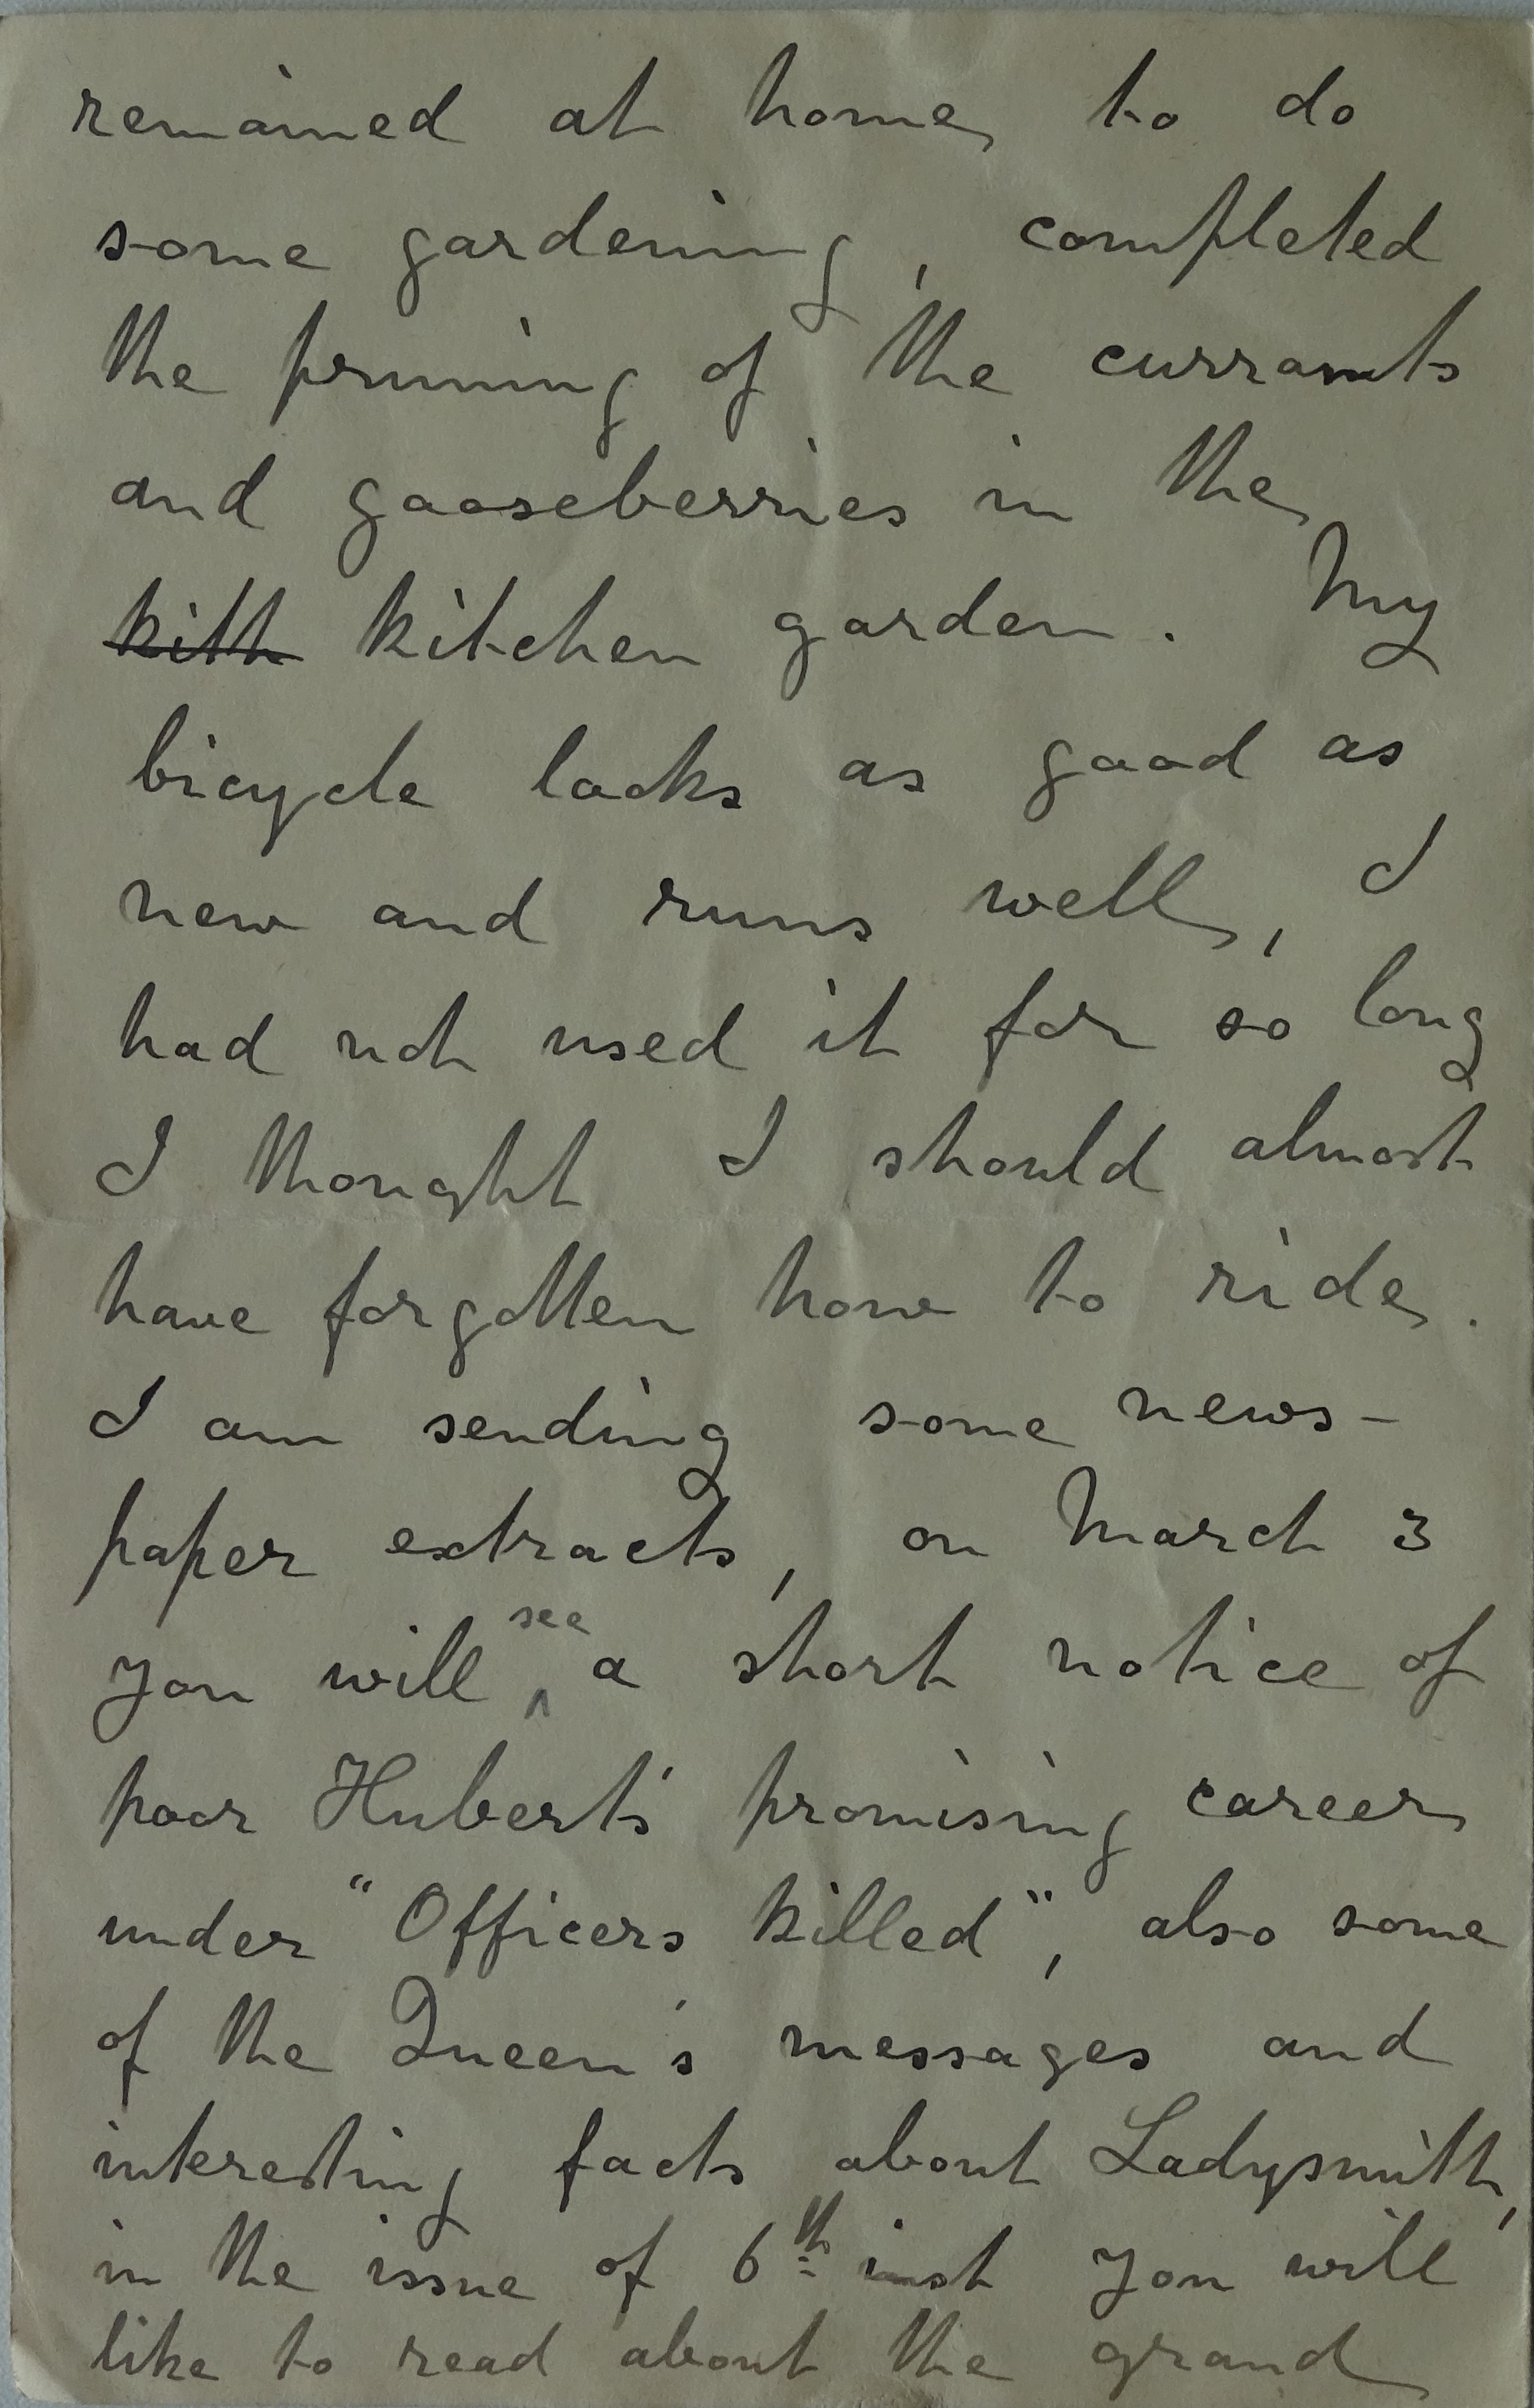 remained at home to do
some gardening, completed
the pruning of the currants
and gooseberries in the
kith kitchen garden. My
bicycle looks as good as
new and runs well, I
had not used it for so long
I thought I should almost
have forgotten how to ride.
I am sending some news-
paper extracts, on March 3
you will see a short notice of
poor Hubert's promising career
under "Officers killed", also some
of the Queen's messages and
interesting facts about Ladysmith,
in the issue of 6th inst you will
like to read about the grand